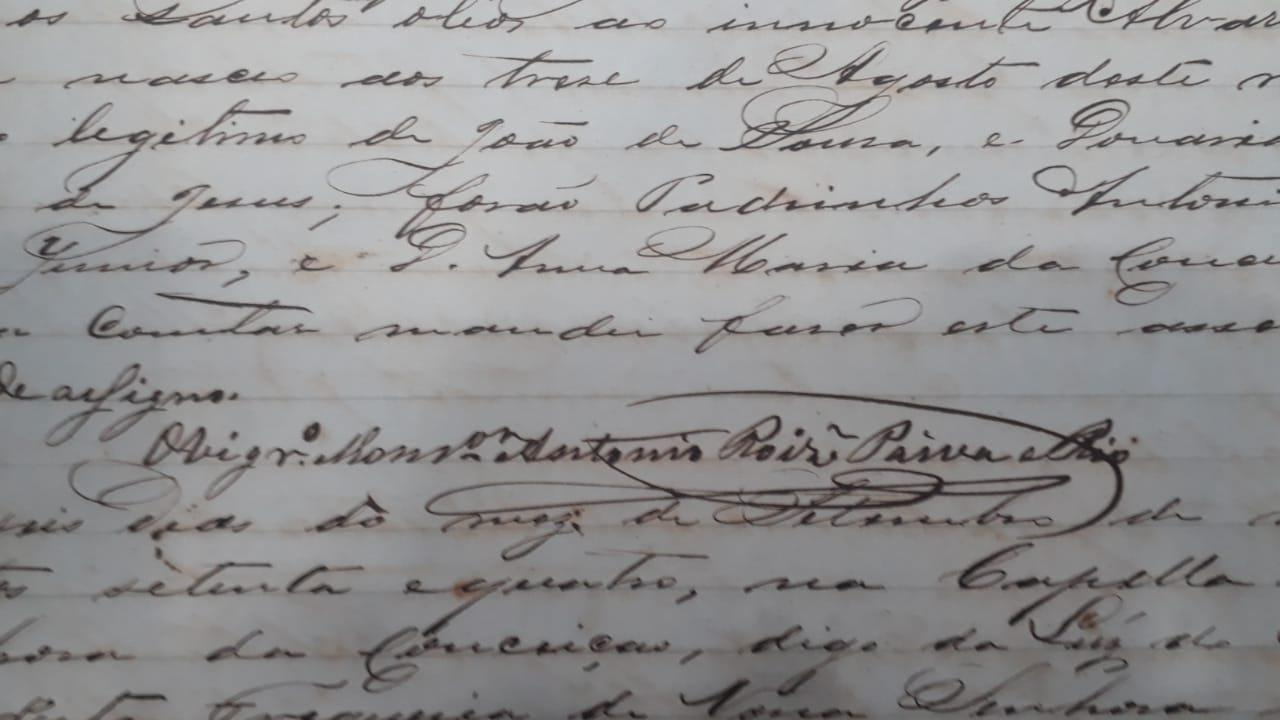 os Santos oleos ao innocente Alvar
nasceo aos trese de Agosto deste
legitimo de João de Sousa, e
de Jesus; forão Padrinhos Antoni
Junior, e D. Anna Maria da Concei
Constar mandei faser este asse
de assigno.
O Vigr.º Mons.or Antonio Roiz~ Paiva e Rio
seis dias do mez de Setembro de
setenta e quatro, na Capella
hora da Conceiçao, digo da Luz do
desta Freguesia de Nossa Senhora